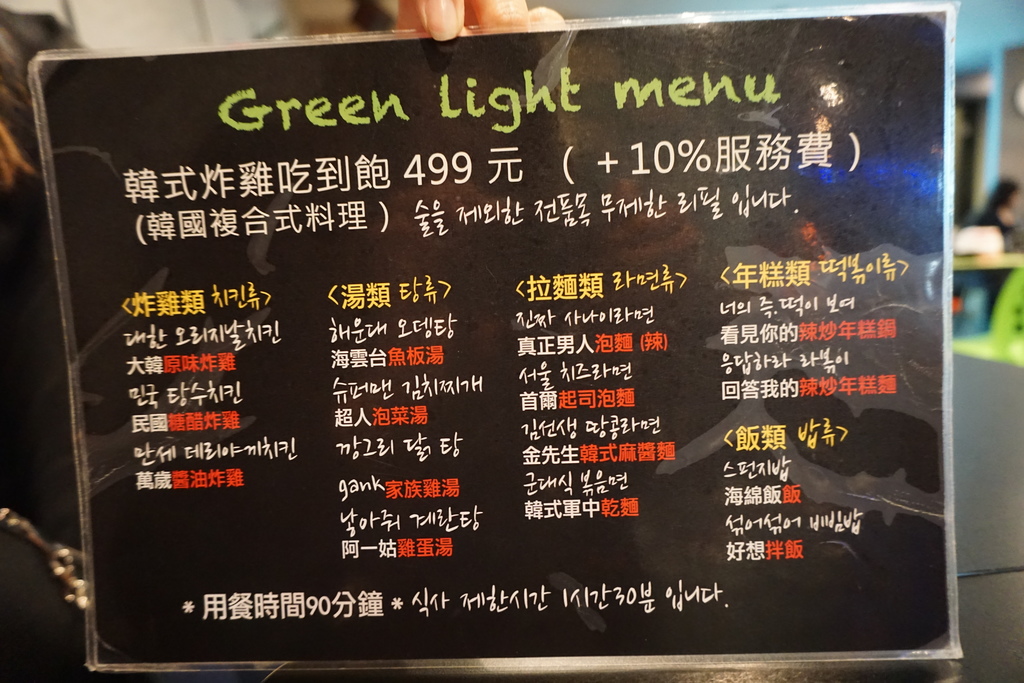 Green light menu
韓式炸雞吃到飽 499 元 ( +10%服務費 )
(韓國複合式料理 ) 술을 제외한 전품목 무제한 리필 입니다.
<炸雞類 치킨류>
대한 오리지날치킨
大韓原味炸雞
민국 탕수치킨
民國糖醋炸雞
만세 데리야끼치킨
萬歲醬油炸雞
<湯類 탕류>
해운대 오뎅탕
海雲台魚板湯
슈퍼맨 김치찌개
超人泡菜湯
깡그리 닭, 탕
gank家族雞湯
낳아줘 계란탕
阿一姑雞蛋湯
<拉麵類 라면류>
진짜 사나이라면
真正男人泡麵 (辣)
서울 치즈라면
首爾起司泡麵
김선생 땅콩라면
金先生韓式麻醬麵
군대식 볶음면
韓式軍中乾麵
<年糕類 떡볶이류>
너의 즉.떡이 보여
看見你的辣炒年糕鍋
응답하라 라볶이
回答我的辣炒年糕麵
<飯類 밥류>
스펀지밥
海綿飯飯
섞어섞어 비빔밥
好想拌飯
* 用餐時間90分鐘 * 식사 제한시간 1시간30분 입니다.